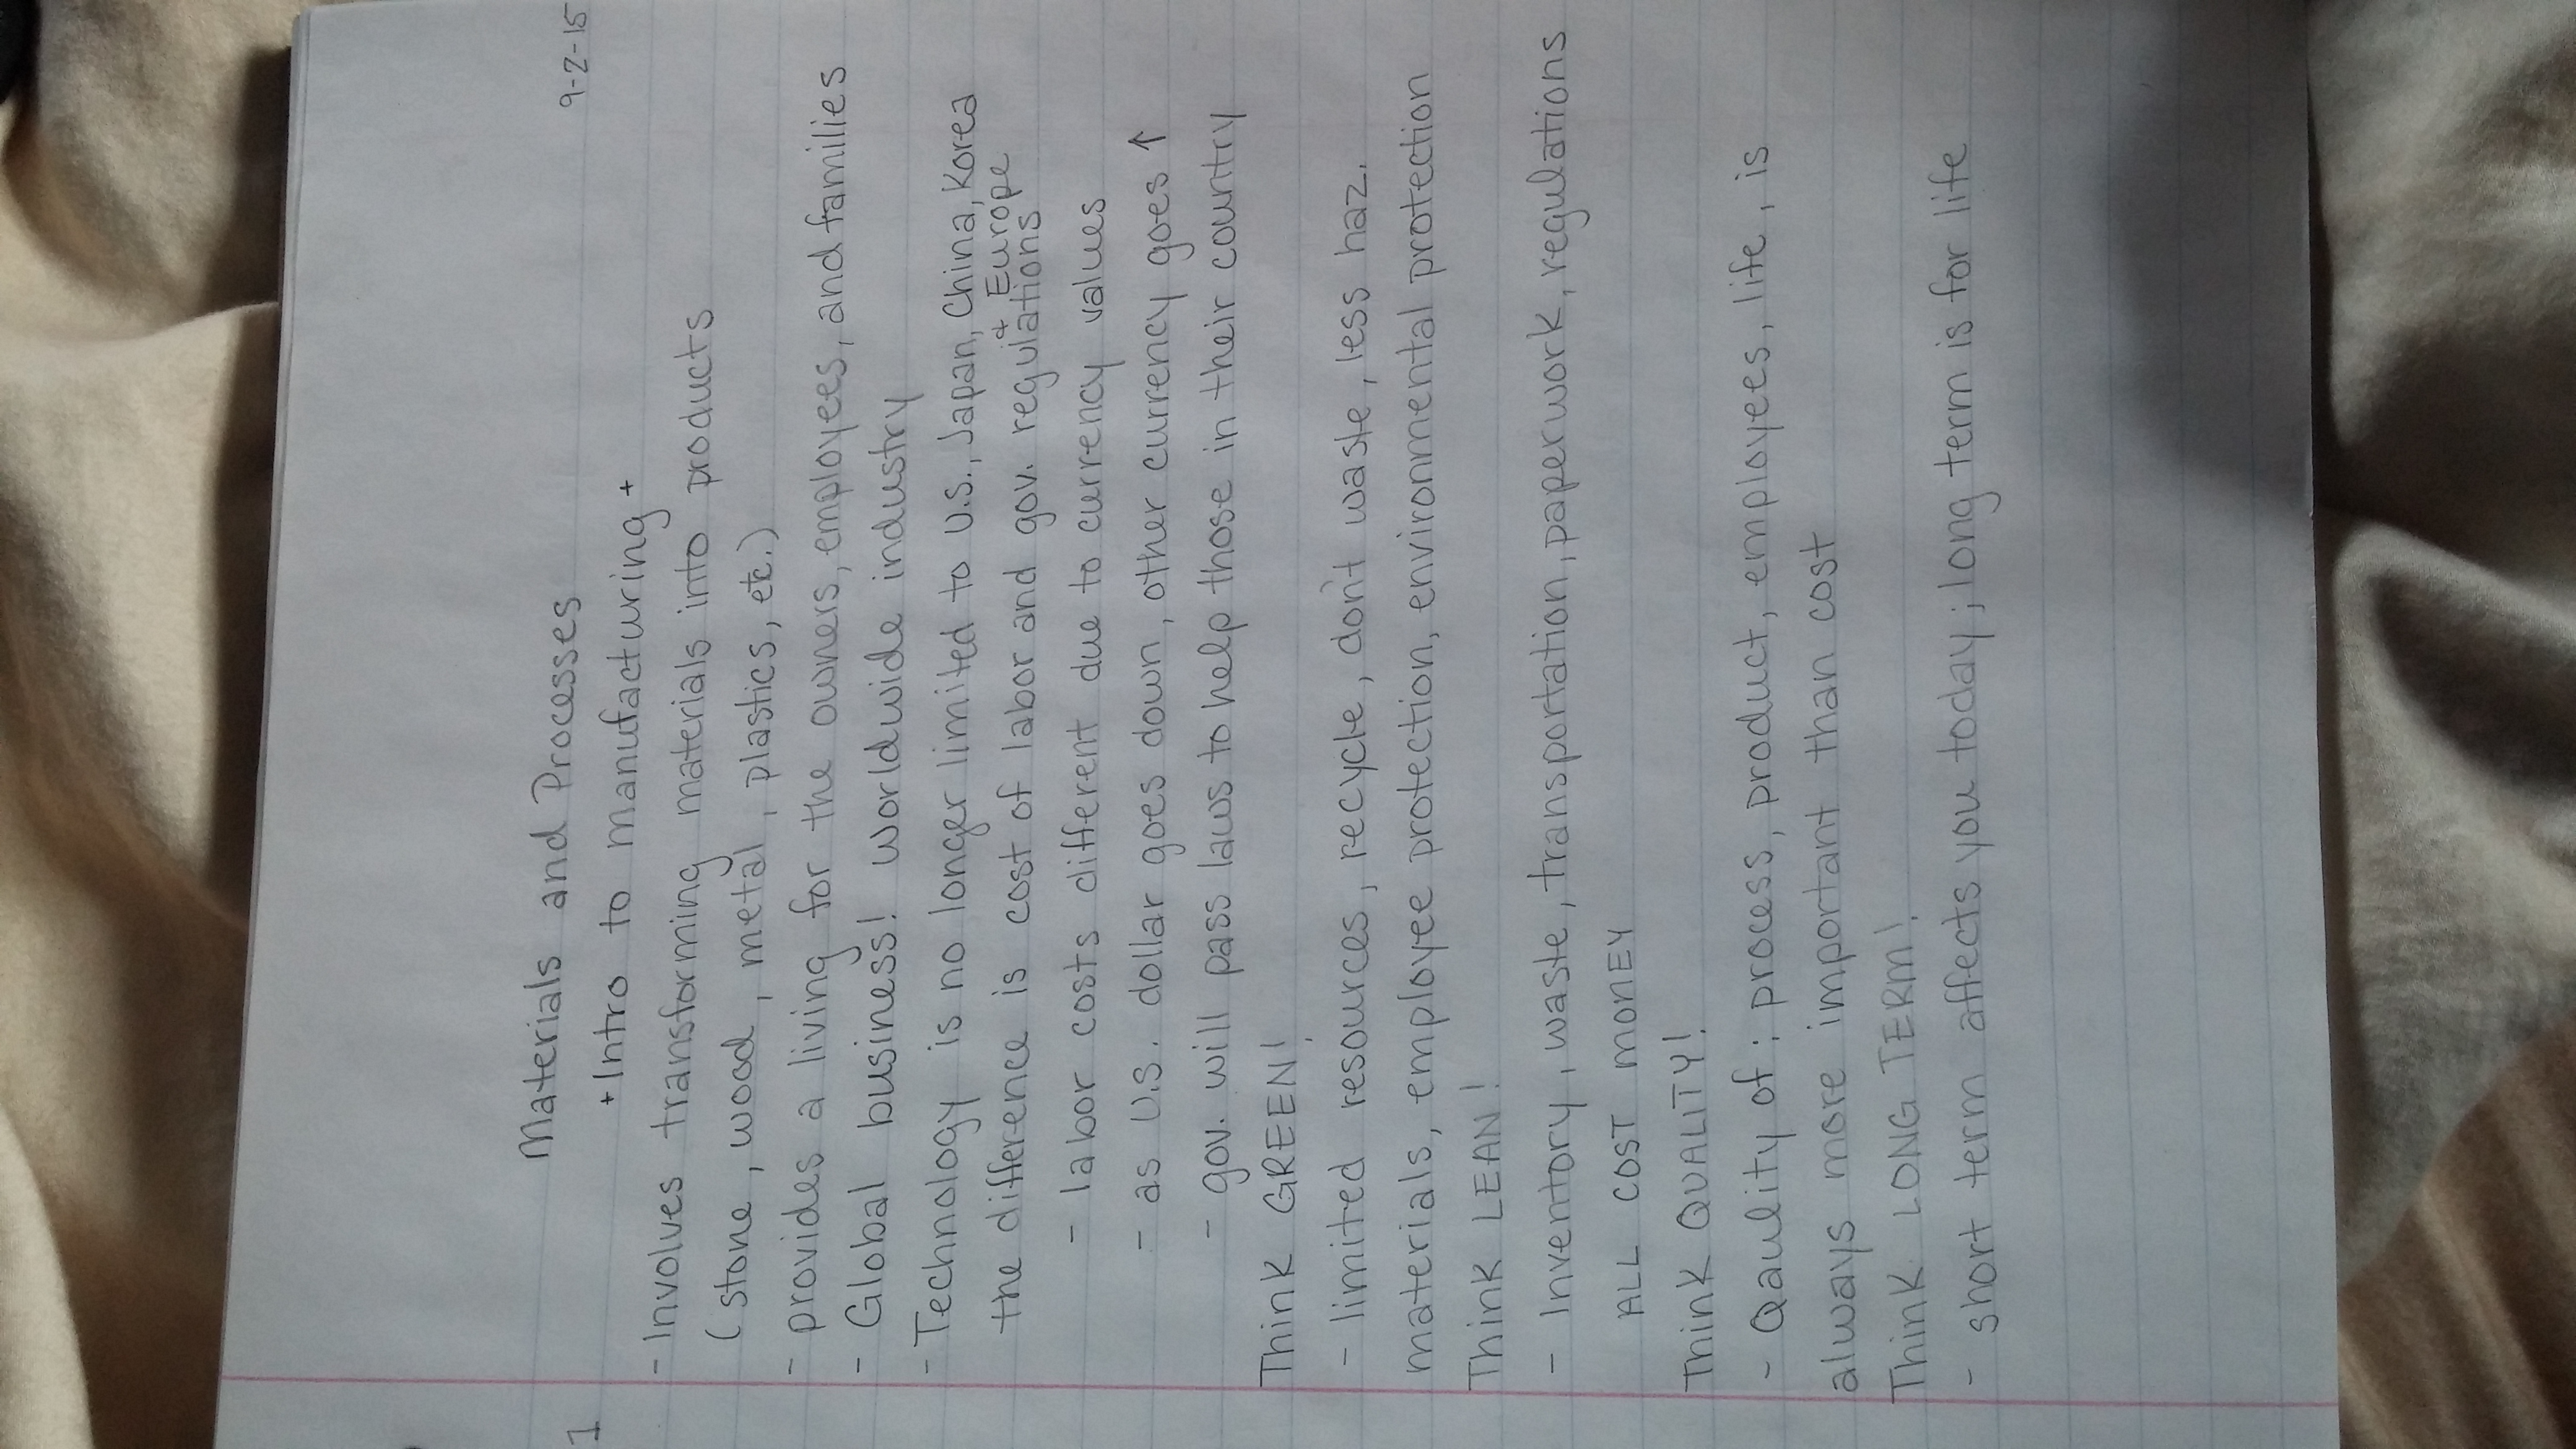 1
9-2-15
Materials and Processes
+ Intro to manufacturing +
- Involves transforming materials into products
(stone, wood, metal, plastics, etc.)
- provides a living for the owners, employees, and families
- Global business! worldwide industry
- Technology is no longer limited to U.S., Japan, China, Korea
+ Europe
the difference is cost of labor and gov. regulations
- labor costs different due to currency values
- as U.S. dollar goes down, other currency goes ↑
- gov. will pass laws to help those in their country
Think GREEN!
- limited resources, recycle, don't waste, less haz.
materials, employee protection, environmental protection
Think LEAN!
- Inventory, waste, transportation, paperwork, regulations
ALL COST MONEY
Think QUALITY!
- Qaulity of: process, product, employees, life, is
always more important than cost
Think LONG TERM!
- short term affects you today; long term is for life